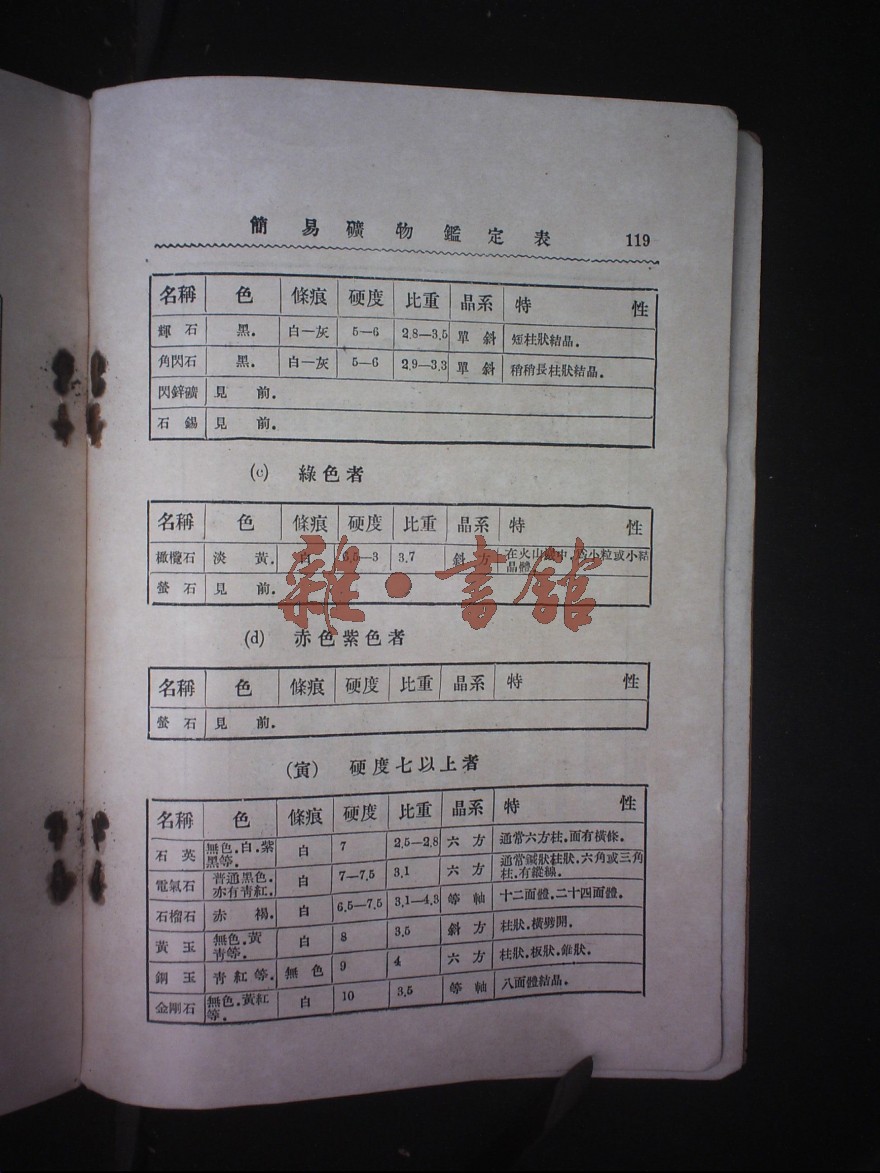 簡易礦物鑑定表 119
名稱 色 條痕 硬度 比重 晶系 特性
輝石 黑. 白—灰 5—6 2.8—3.5 單斜 短柱狀結晶.
角閃石 黑. 白—灰 5—6 2.9—3.3 單斜 稍稍長柱狀結晶.
閃鋅礦 見前.
石錫 見前.
(c) 綠色者
名稱 色 條痕 硬度 比重 晶系 特性
橄欖石 淡黃. 白 6.5—3 3.7 斜方 在火山 中, 小粒或小結
晶體.
螢石 見前.
雜·書館
(d) 赤色紫色者
名稱 色 條痕 硬度 比重 晶系 特性
螢石 見前.
(寅) 硬度七以上者
名稱 色 條痕 硬度 比重 晶系 特性
石英 無色.白.紫 白 7 2.5—2.8 六方 通常六方柱.面有橫條.
黑等.
電氣石 普通黑色. 白 7—7.5 3.1 六方 通常鍼狀柱狀.六角或三角
亦有青紅. 柱.有縱線.
石榴石 赤褐. 白 6.5—7.5 3.1—4.3 等軸 十二面體.二十四面體.
黃玉 無色.黃 白 8 3.5 斜方 柱狀.橫劈開.
青等.
鋼玉 青紅等. 無色 9 4 六方 柱狀.板狀.錐狀.
金剛石 無色.黃紅 白 10 3.5 等軸 八面體結晶.
等.